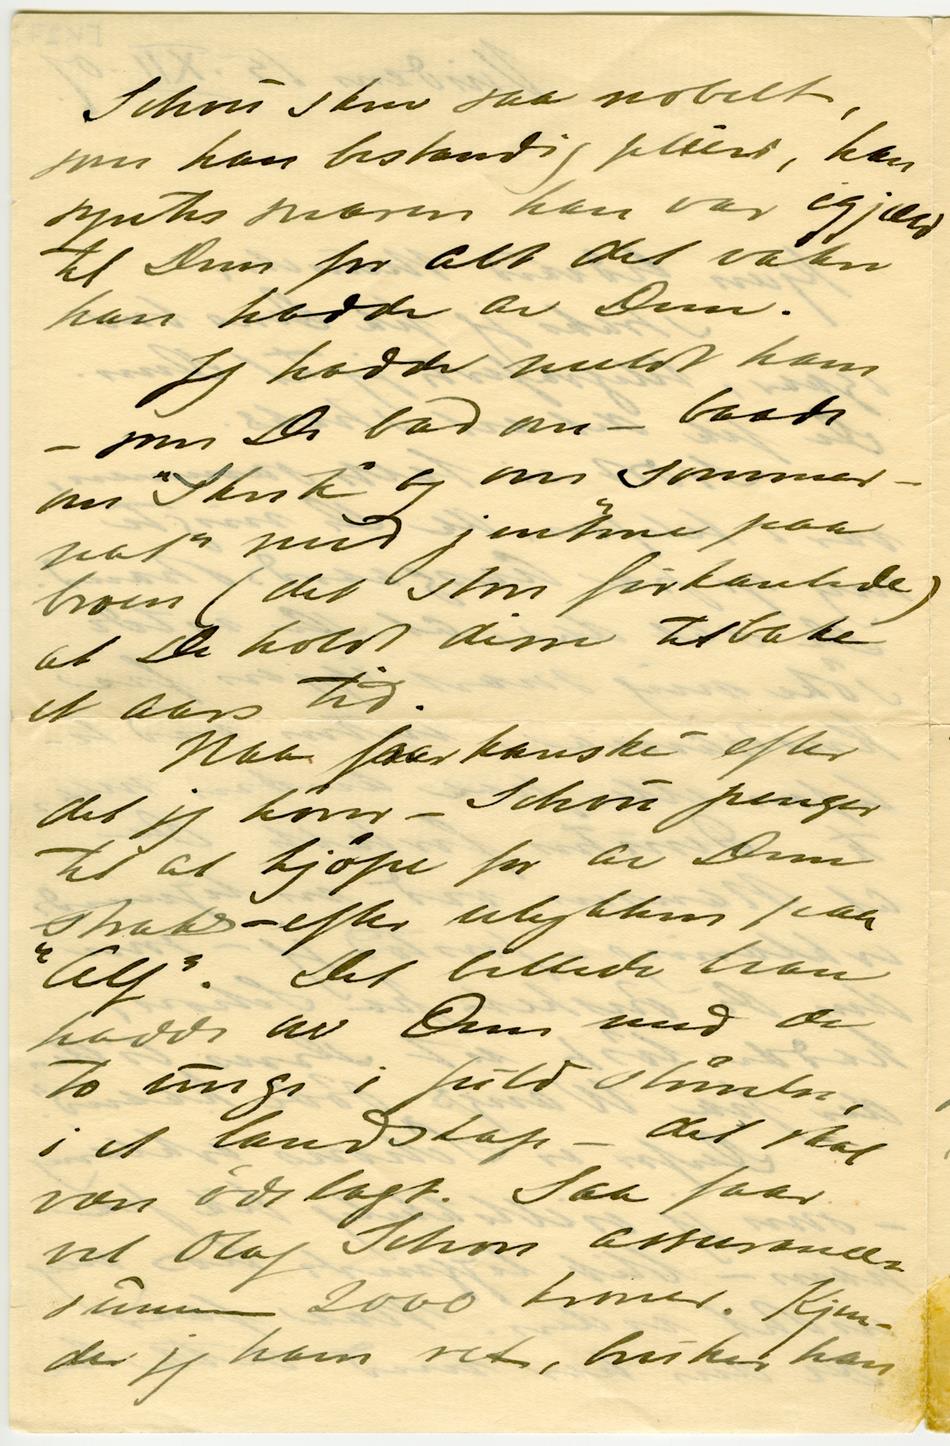 Schou skrev saa nobelt,
som han bestandig pleier, han
syntes snarere han var igjæld
til Dem for alt det vakre
han hadde av Dem.
Jeg hadde meldt ham
– som De bad om – baade
om "Skrik" og om Sommer-
nat" med jentene paa
broen (det store firkantede)
at De holdt disse tilbake
et aars tid.
Naa faar kanske efter
det jeg hører – Schou penger
til at kjøpe for av Dem
straks – efter ulykken paa
"Alf". Det billede han
hadde av Dem med de
to unge i fuld
i et landskap – det skal
være ödelagt. Saa faar
vel Olaf Schou assurance
summen 2000 kroner. Kjen-
der jeg ham ret, bruker han